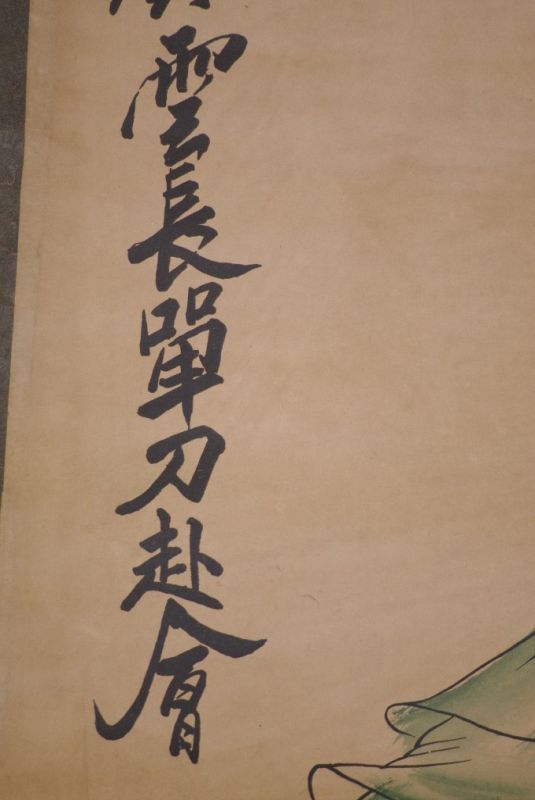 雲長單刀赴會